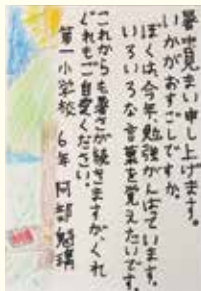 暑中見まい申し上げます。
いかがおすごしですか。
ぼくは、今年勉強がんばています。
いろいろな言葉を覚えたいです。
これからも暑さが続きますが、くれ
ぐれもご自愛ください。
第一小学校 6年 阿部